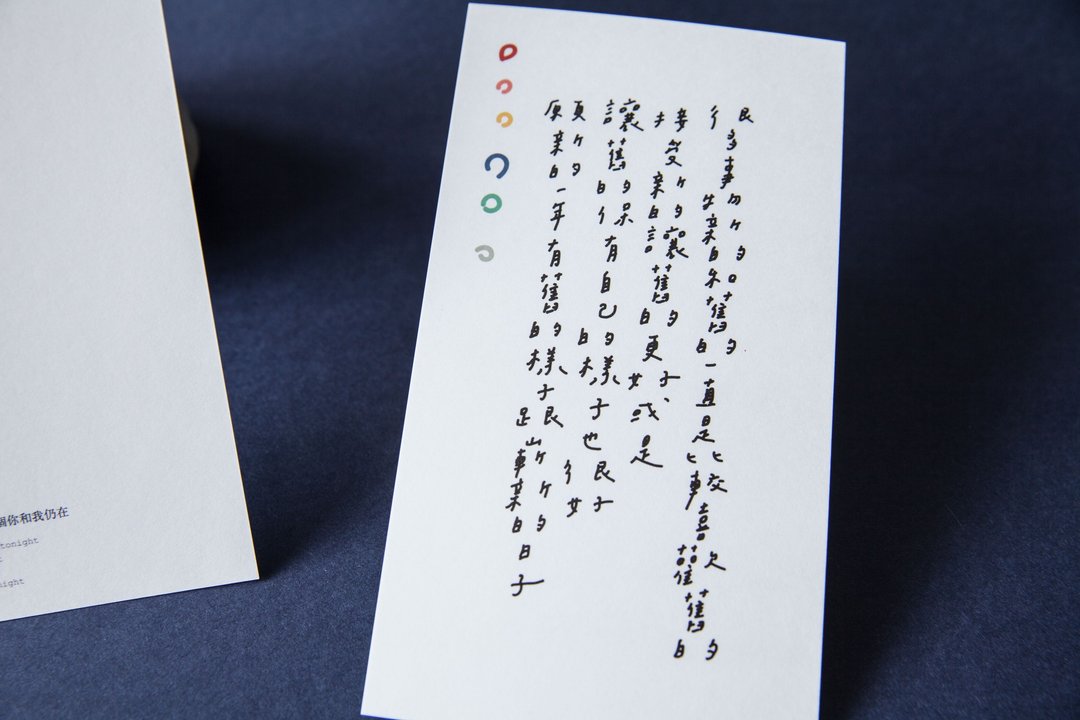 很多事物新的和舊的一直是比較喜歡舊的
接受新的讓舊的更好、或是
讓舊的保有自己的樣子也很好
願新的一年有舊的樣子跟嶄新的日子
個你和我仍在
tonight
night